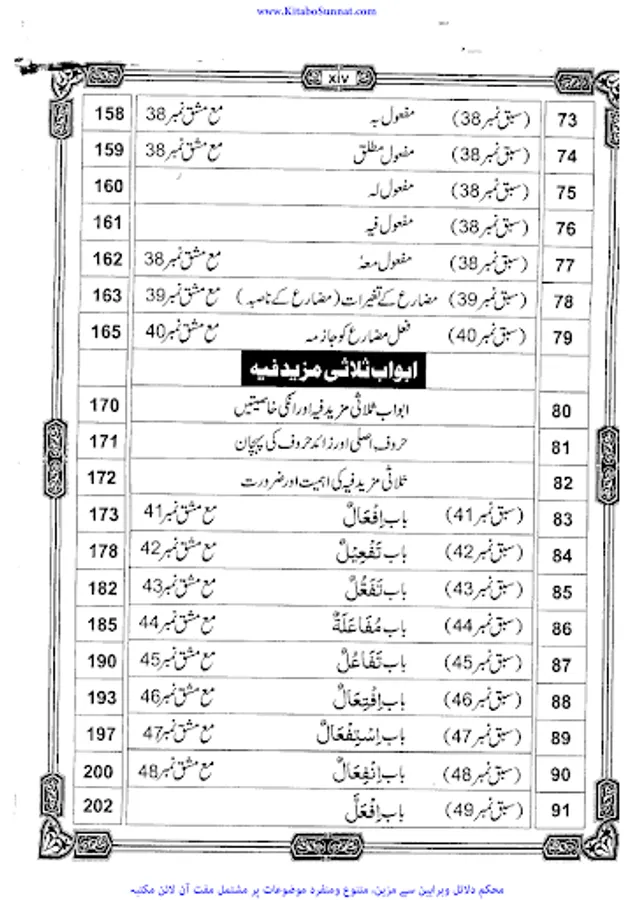 www.KitaboSunnat.com
xiv
73 (سبق نمبر 38) مفعول بہ مع مشق نمبر 38 158
74 (سبق نمبر 38) مفعول مطلق مع مشق نمبر 38 159
75 (سبق نمبر 38) مفعول لہ 160
76 (سبق نمبر 38) مفعول فیہ 161
77 (سبق نمبر 38) مفعول معہٗ مع مشق نمبر 38 162
78 (سبق نمبر 39) مضارع کے تغیرات (مضارع کے ناصبہ) مع مشق نمبر 39 163
79 (سبق نمبر 40) فعل مضارع کو جازمہ مع مشق نمبر 40 165
ابواب ثلاثی مزید فیہ
80 ابواب ثلاثی مزید فیہ اور انکی خاصیتیں 170
81 حروف اصلی اور زائد حروف کی پہچان 171
82 ثلاثی مزید فیہ کی اہمیت اور ضرورت 172
83 (سبق نمبر 41) باب اِفْعَالٌ مع مشق نمبر 41 173
84 (سبق نمبر 42) باب تَفْعِيْلٌ مع مشق نمبر 42 178
85 (سبق نمبر 43) باب تَفَعُّلٌ مع مشق نمبر 43 182
86 (سبق نمبر 44) باب مُفَاعَلَةٌ مع مشق نمبر 44 185
87 (سبق نمبر 45) باب تَفَاعُلٌ مع مشق نمبر 45 190
88 (سبق نمبر 46) باب اِفْتِعَالٌ مع مشق نمبر 46 193
89 (سبق نمبر 47) باب اِسْتِفْعَالٌ مع مشق نمبر 47 197
90 (سبق نمبر 48) باب اِنْفِعَالٌ مع مشق نمبر 48 200
91 (سبق نمبر 49) باب اِفْعَلٌّ 202
محکم دلائل وبراہین سے مزین، متنوع ومنفرد موضوعات پر مشتمل مفت آن لائن مکتبہ